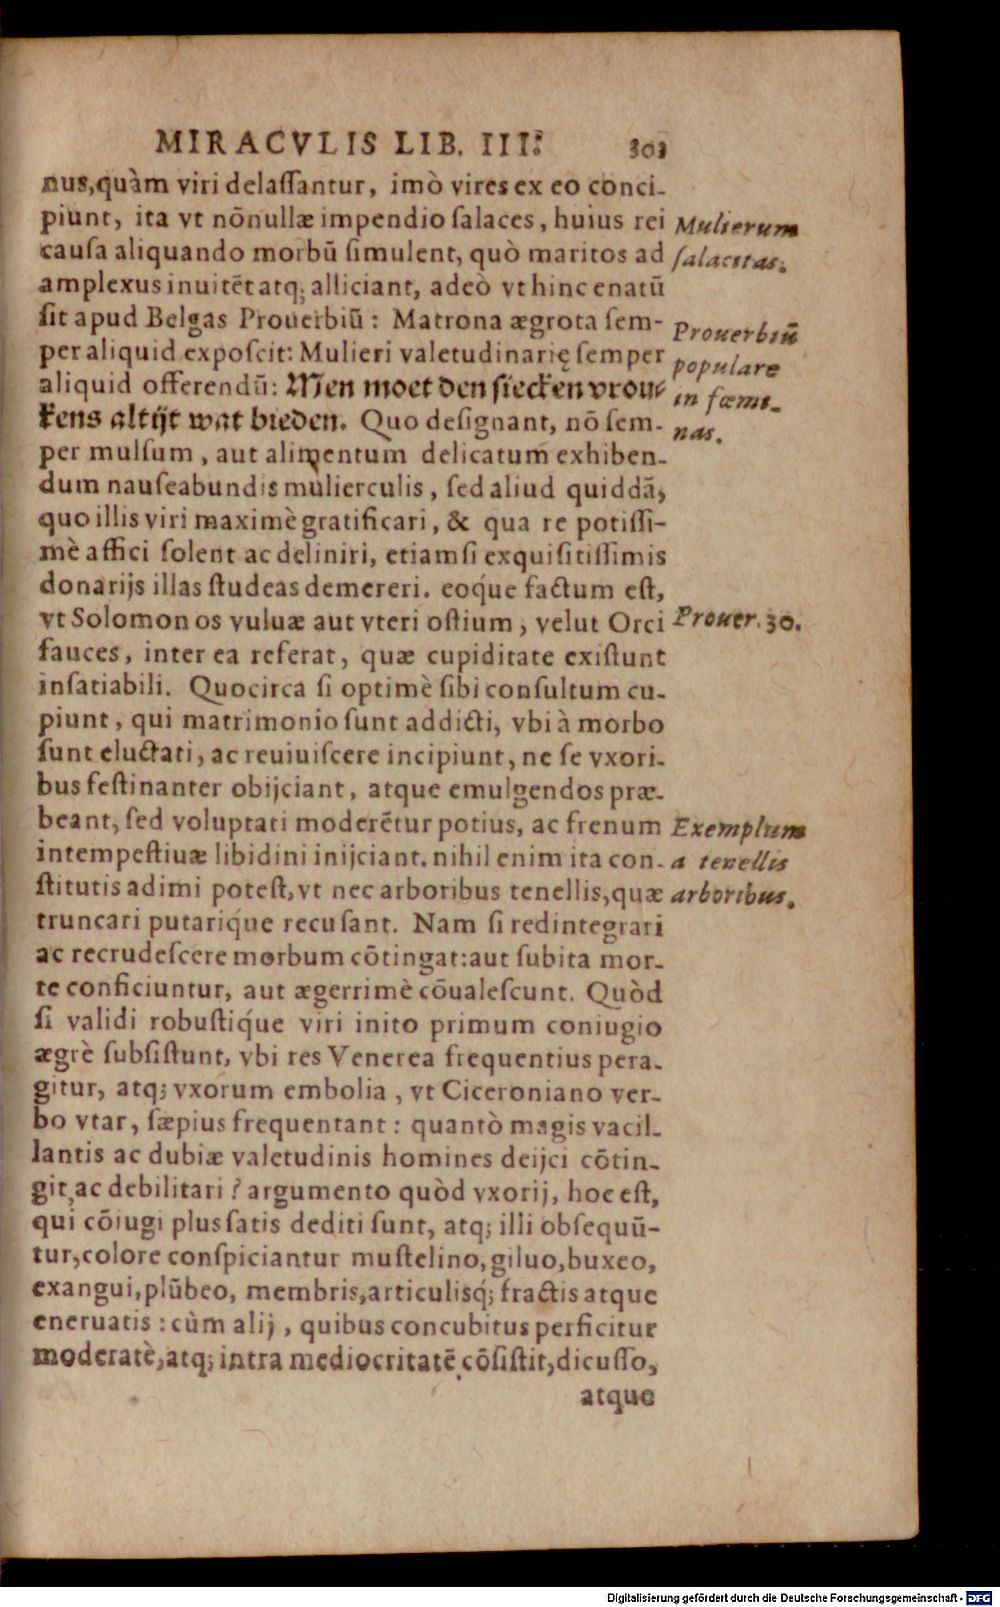 MIRACVLIS LIB. III. 303
nus, quàm viri delassantur, imò vires ex eo conci-
piunt, ita vt nōnullæ impendio salaces, huius rei
causa aliquando morbū simulent, quò maritos ad
amplexus inuitēt atq; alliciant, adeò vt hinc enatū
sit apud Belgas Prouerbiū: Matrona ægrota sem-
per aliquid exposcit: Mulieri valetudinarię semper
aliquid offerendū: Men moet den siecken vrou-
kens altijt wat bieden. Quo designant, nō sem-
per mulsum, aut alimentum delicatum exhiben-
dum nauseabundis mulierculis, sed aliud quiddā,
quo illis viri maximè gratificari, & qua re potissi-
mè affici solent ac deliniri, etiamsi exquisitissimis
donarijs illas studeas demereri. eoq́ue factum est,
vt Solomon os vuluæ aut vteri ostium, velut Orci
fauces, inter ea referat, quæ cupiditate existunt
insatiabili. Quocirca si optimè sibi consultum cu-
piunt, qui matrimonio sunt addicti, vbi à morbo
sunt eluctati, ac reuiuiscere incipiunt, ne se vxori-
bus festinanter obijciant, atque emulgendos præ-
beant, sed voluptati moderētur potius, ac frenum
intempestiuæ libidini inijciant. nihil enim ita con-
stitutis adimi potest, vt nec arboribus tenellis, quæ
truncari putariq́ue recusant. Nam si redintegrari
ac recrudescere morbum cōtingat: aut subita mor-
te conficiuntur, aut ægerrimè cōualescunt. Quòd
si validi robustiq́ue viri inito primum coniugio
ægrè subsistunt, vbi res Venerea frequentius pera-
gitur, atq; vxorum embolia, vt Ciceroniano ver-
bo vtar, sæpius frequentant: quantò magis vacil-
lantis ac dubiæ valetudinis homines deijci cōtin-
git, ac debilitari? argumento quòd vxorij, hoc est,
qui cōiugi plus satis dediti sunt, atq; illi obsequū-
tur, colore conspiciantur mustelino, giluo, buxeo,
exangui, plūbeo, membris, articulisq́; fractis atque
eneruatis: cùm alij, quibus concubitus perficitur
moderatè, atq; intra mediocritatē cōsistit, dicusso,
atque
Mulierum
salacitas.
Prouerbiū
populare
in fœmi-
nas.
Prouer. 30.
Exemplum
a tenellis
arboribus.
Digitalisierung gefördert durch die Deutsche Forschungsgemeinschaft - DFG